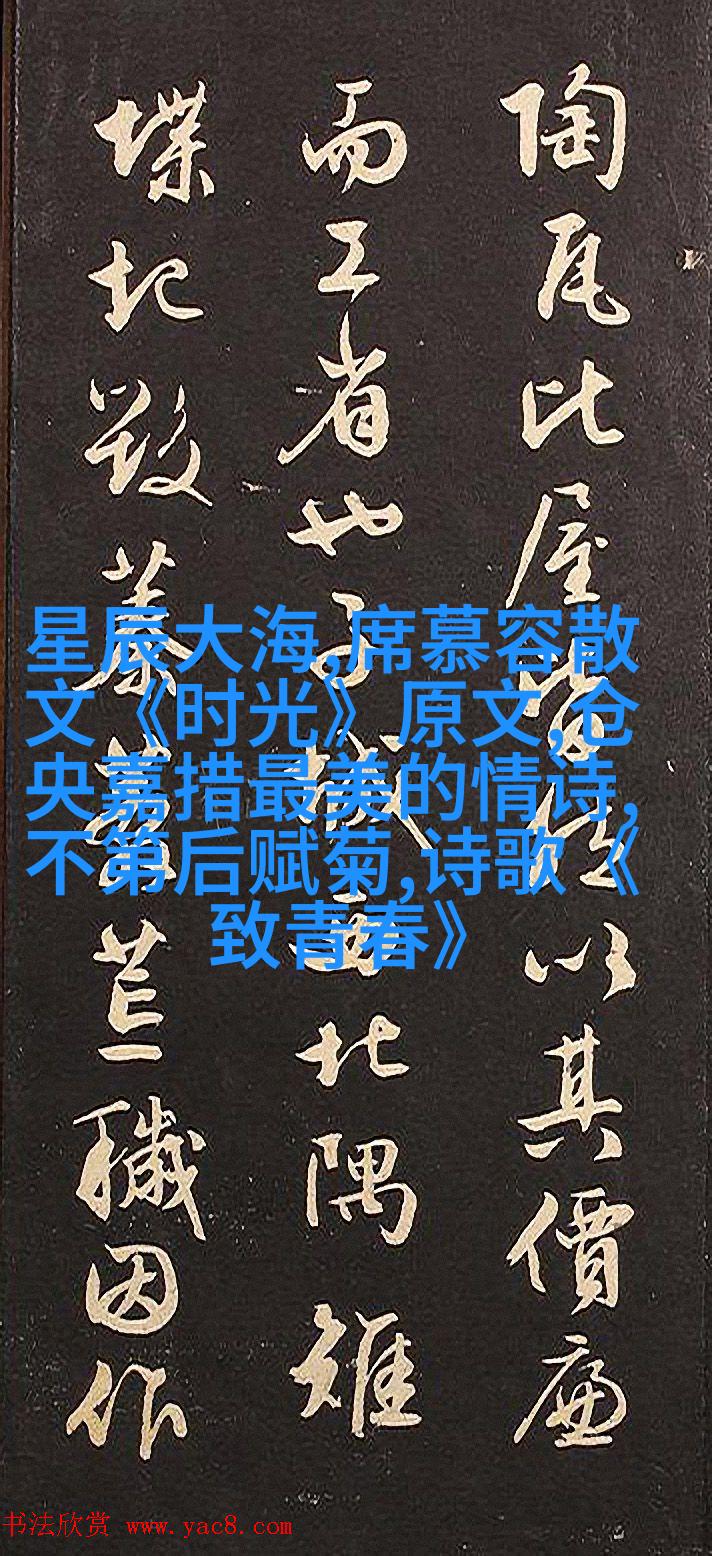 陶瓦比屋皆然以其價廉
而工省也子城西北隅雉
堞圮毀蓁莽荒穢因作
星辰大海,席慕容散
文《时光》原文,仓
央嘉措最美的情诗,
不第后赋菊,诗歌《
致青春》
书法欣赏 www.yac8.com